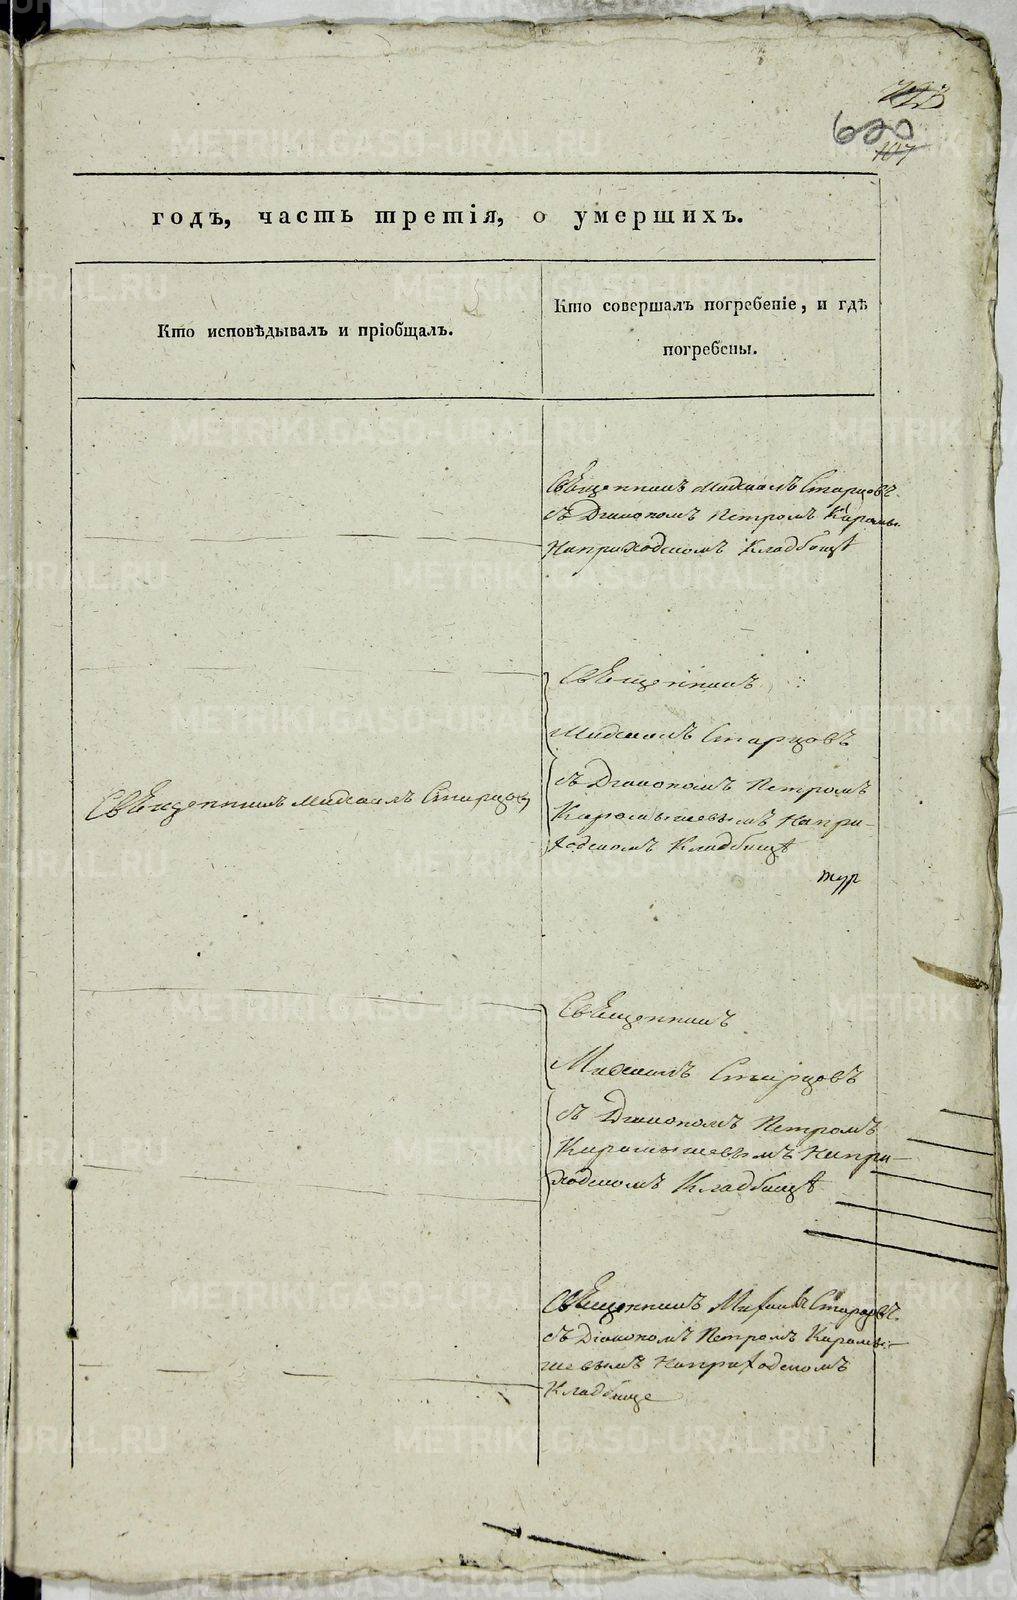 620
107
годъ, часть третія, о умершихъ.
Кто исповѣдывалъ и пріобщалъ.
Кто совершалъ погребеніе, и гдѣ
погребены.
Священникъ Михаилъ Старцовъ
съ Дїакономъ Петромъ Карамы
На приходскомъ Кладбищѣ
Священникъ
Михаилъ Старцовъ
съ Дїакономъ Петромъ
Карамышевымъ На при-
ходскомъ Кладбищѣ
Священникъ Михаилъ Старцов
Священникъ
Михаилъ Старцовъ
съ Дїакономъ Петромъ
Карамышевымъ На при-
ходскомъ Кладбищѣ
Священникъ Михаилъ Старцовъ
съ Дїакономъ Петромъ Карамы-
шевымъ На приходскомъ
Кладбище
METRIKI.GASO-URAL.RU